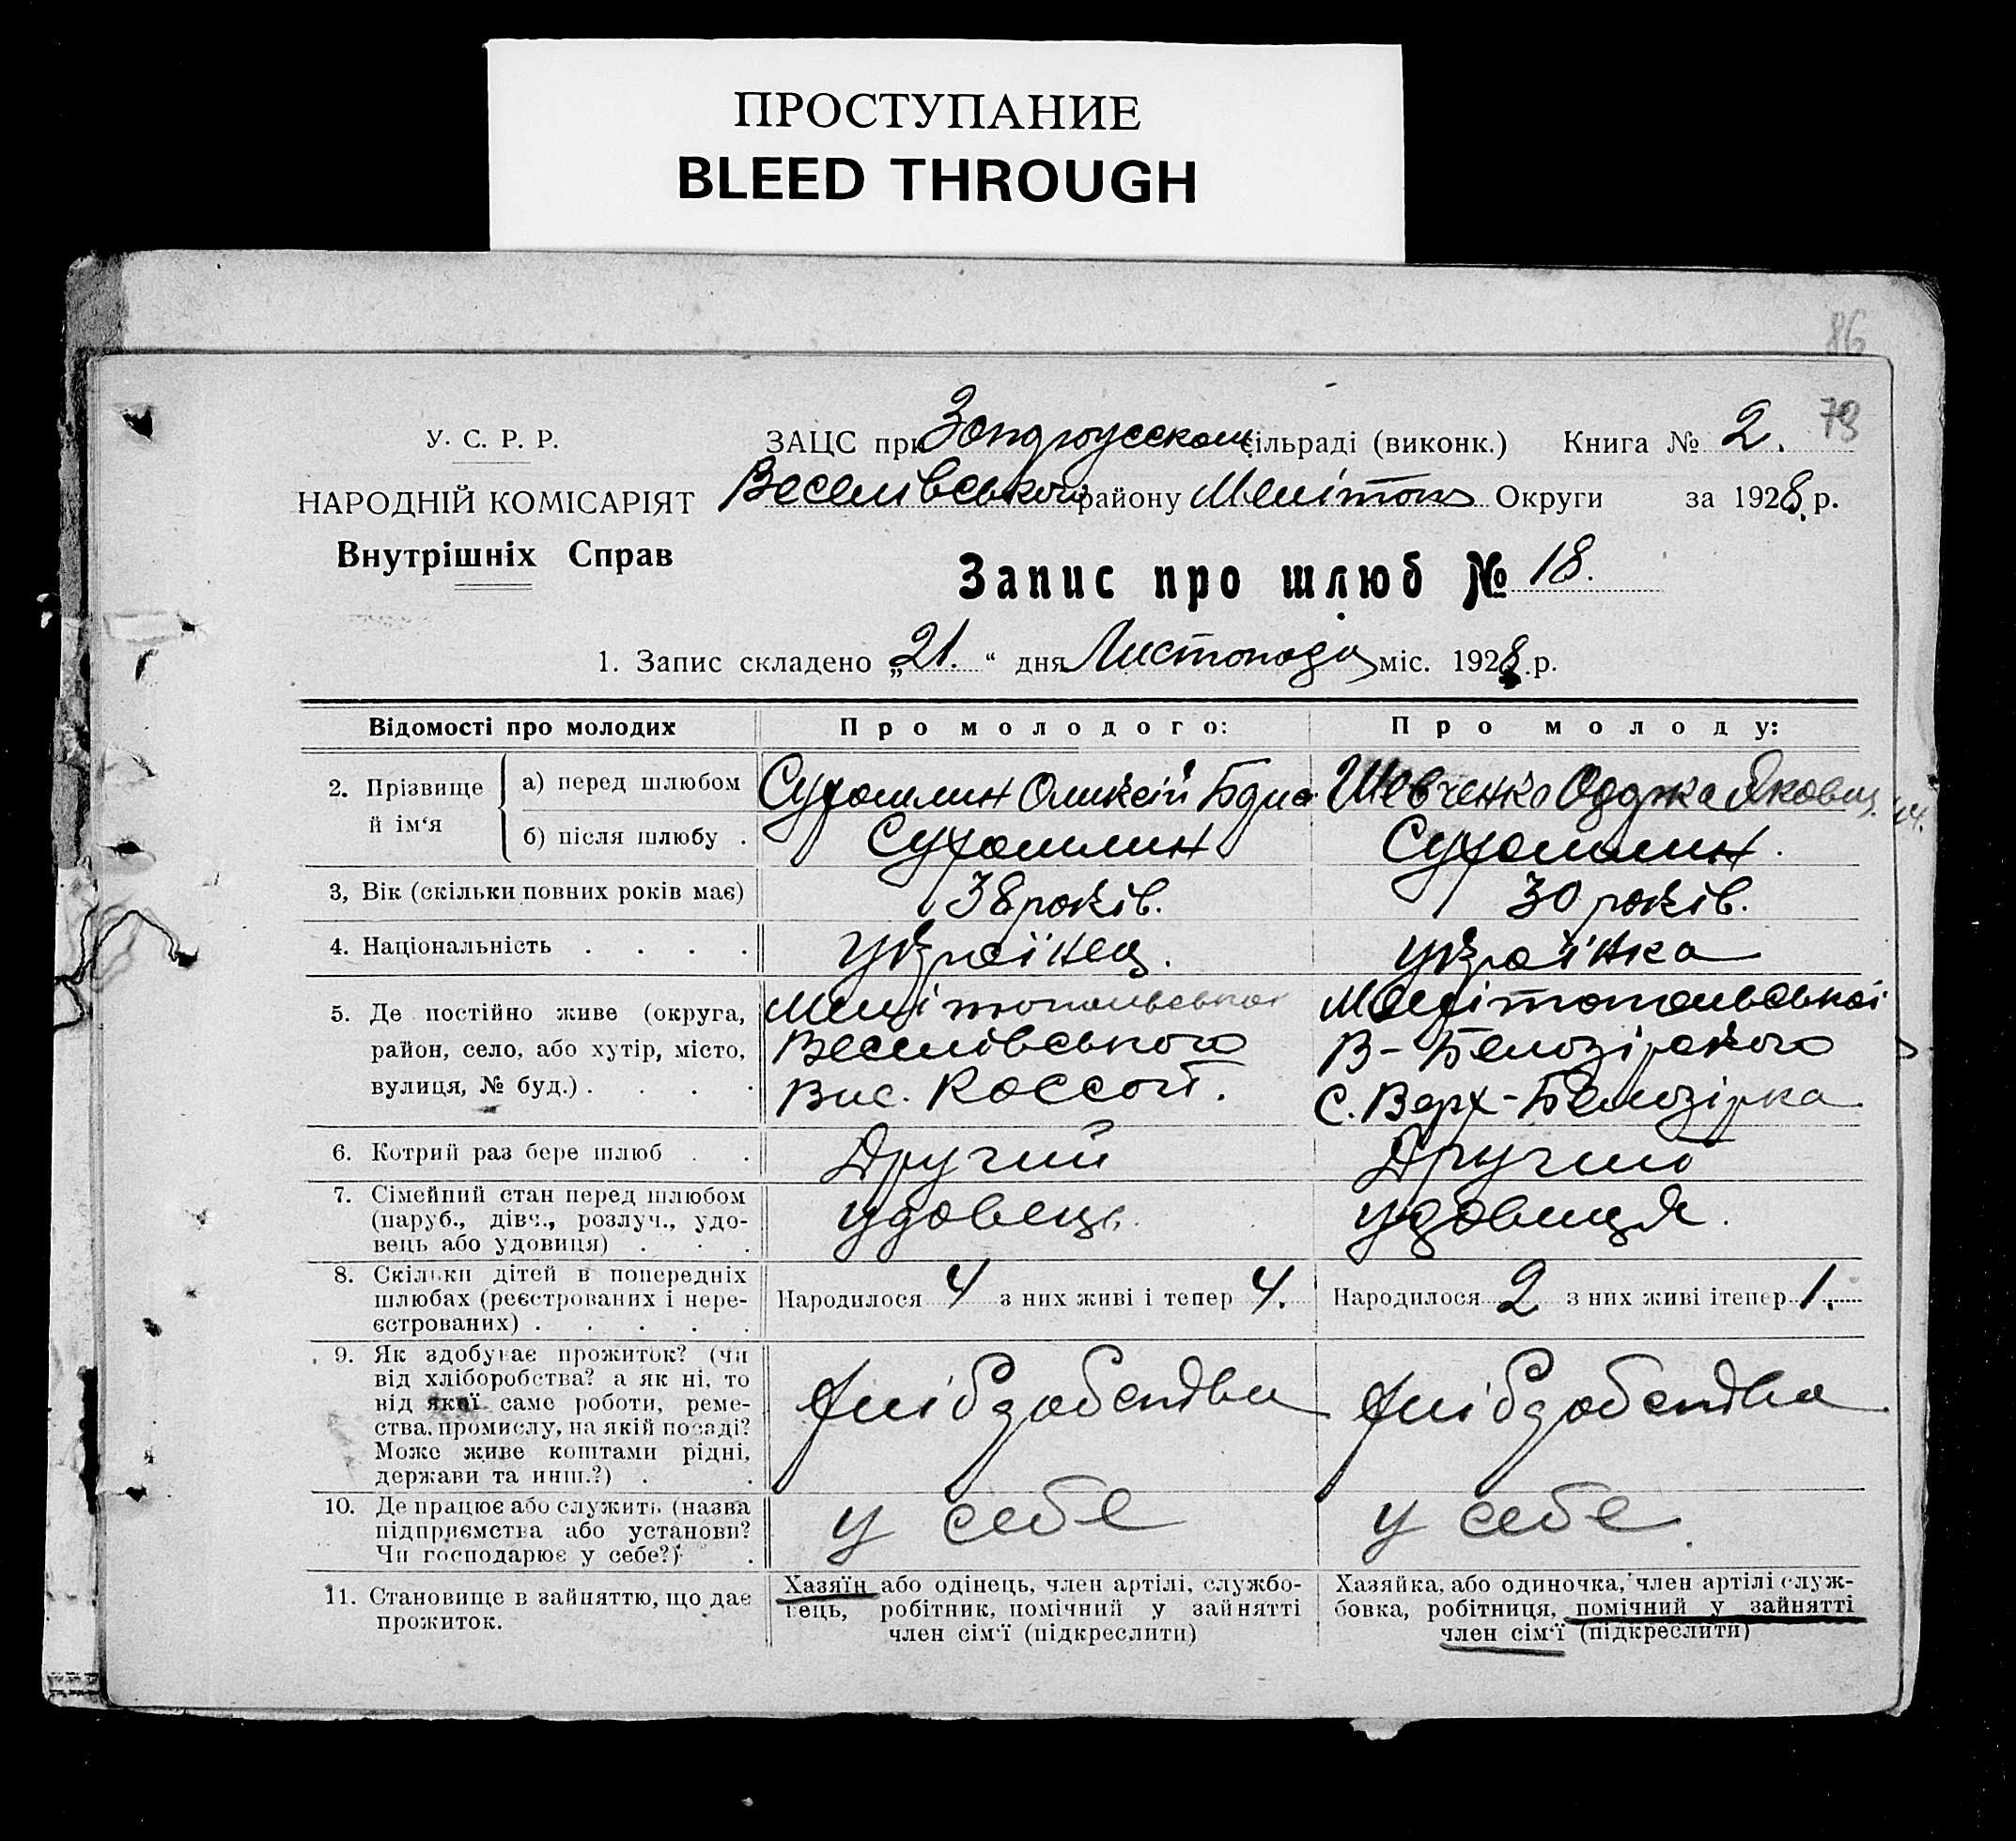 ПРОСТУПАНИЕ
BLEED THROUGH
86
У. С. Р. Р.
ЗАЦС при сільраді (виконк.) Книга № 2. 73
НАРОДНІЙ КОМІСАРІЯТ
Веселівського району Мелітоп Округи за 1928 р.
Внутрішніх Справ
Запис про шлюб № 18.
1. Запис складено „21.“ дня Листопада міс. 1928 р.
Відомості про молодих
Про молодого:
Про молоду:
2. Прізвище й ім‘я
а) перед шлюбом
Сухошлин Олексій
Шевченко Яковл.
б) після шлюбу .
Сухошлин
Сухошлин.
3, Вік (скільки повних років має)
38 років.
30 років.
4. Національність . . . .
Українец.
Українка
5. Де постійно живе (округа,
район, село, або хутір, місто,
вулиця, № буд.) . . . .
Мелітопольської
Веселівського
Вис. Россот.
Мелітопольської
В-Белозірського
С. Верх-Белозірка
6. Котрий раз бере шлюб . .
Другий
Другий
7. Сімейний стан перед шлюбом
(паруб., дівч., розлуч., удо-
вець або удовиця) . . .
удовець.
удовиця.
8. Скільки дітей в попередніх
шлюбах (реєстрованих і нере-
єстрованих) . . . . .
Народилося 4 з них живі і тепер 4.
Народилося 2 з них живі ітепер 1.
9. Як здобуває прожиток? (чи
від хліборобства? а як ні, то
від якої саме роботи, реме-
ства, промислу, на якій посаді?
Може живе коштами рідні,
держави та инш.?) . .
10. Де працює або служить (назва
підприємства або установи?
Чи господарює у себе?) .
у себе
у себе.
11. Становище в зайняттю, що дає
прожиток.
Хазяїн або одінець, член артілі, службо-
вець, робітник, помічний у зайнятті
член сім‘ї (підкреслити)
Хазяйка, або одиночка, член артілі служ-
бовка, робітниця, помічний у зайнятті
член сім‘ї (підкреслити)